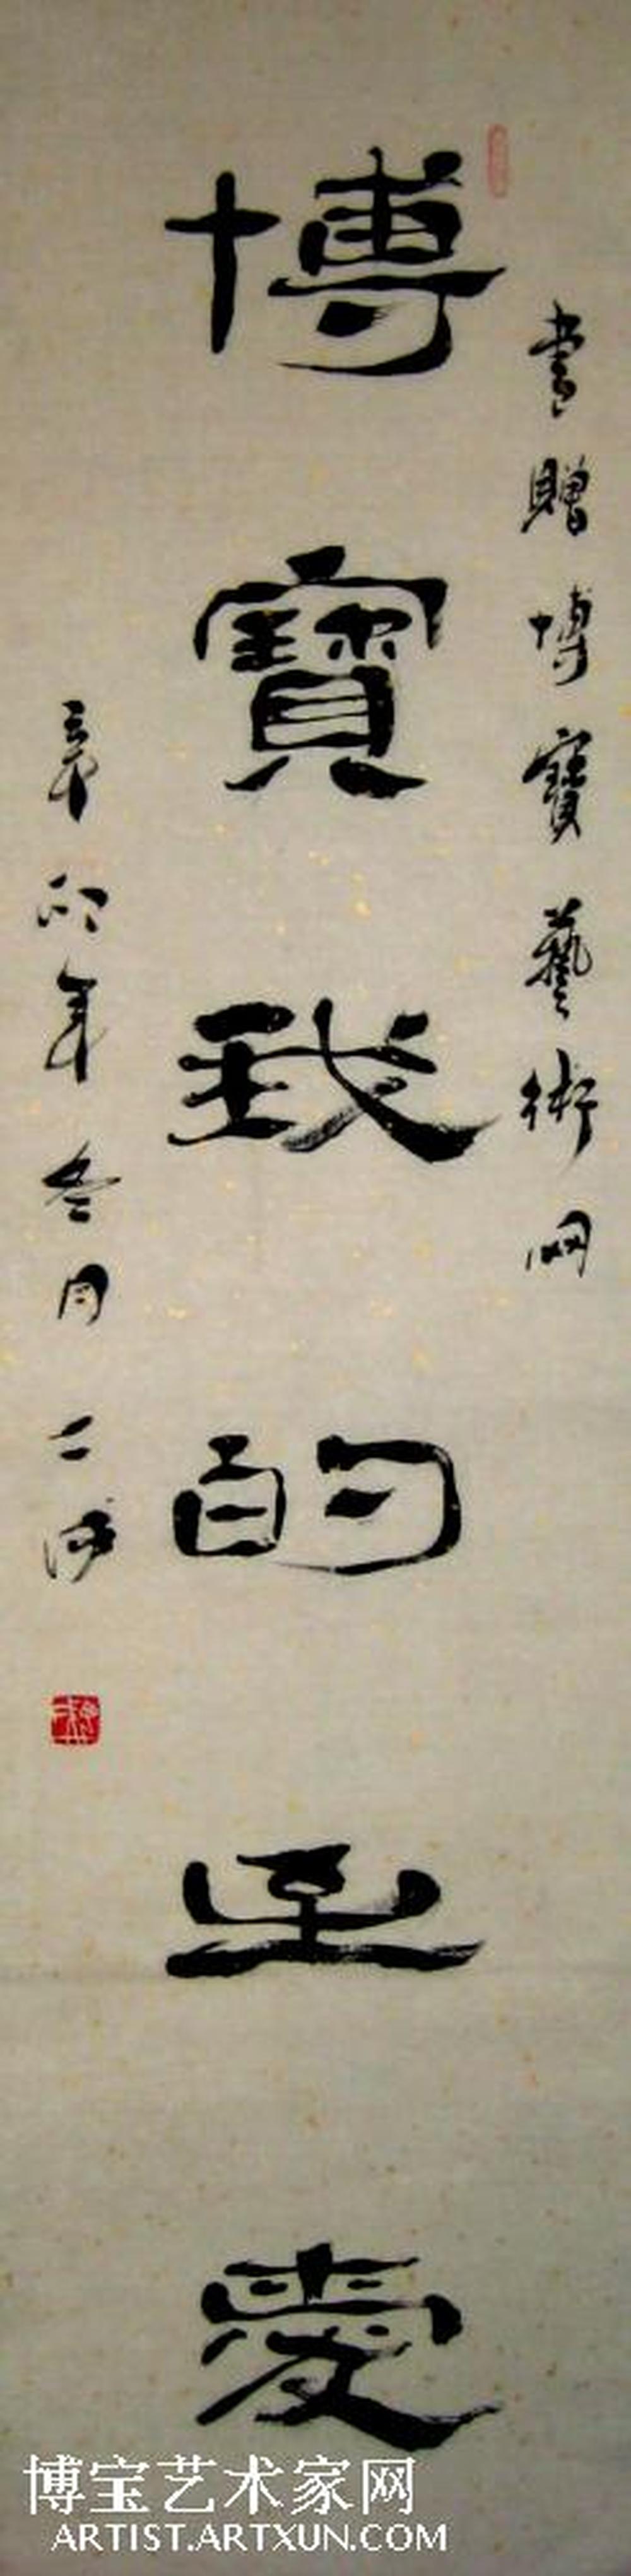 書贈博寶藝術网
博寶我的至愛
辛卯年叁月
博宝艺术家网
ARTIST.ARTXUN.COM